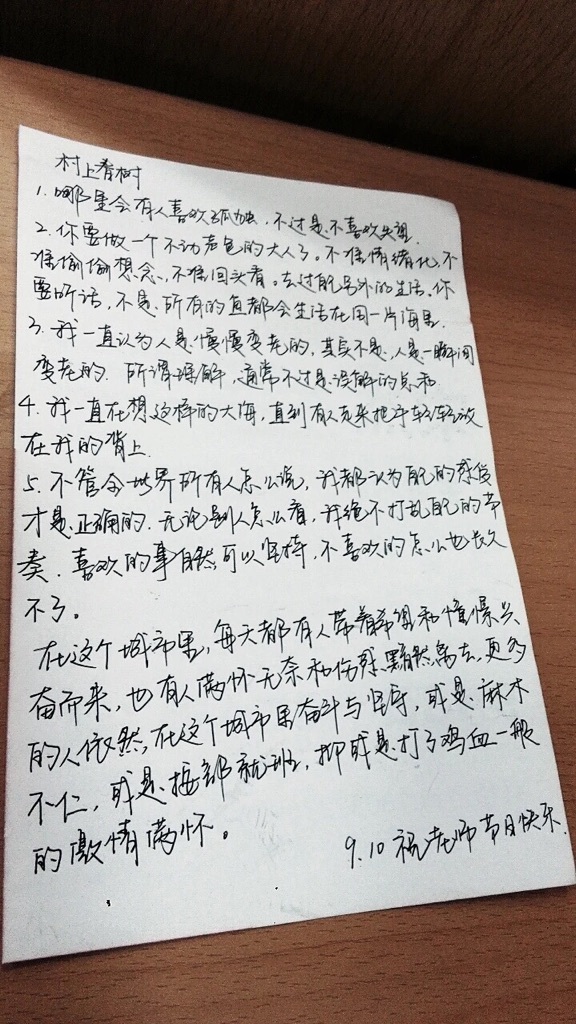 村上春树
1. 哪里会有人喜欢孤独，不过是不喜欢失望.
2. 你要做一个不动声色的大人了。不准情绪化，不
准偷偷想念，不准回头看。去过自己另外的生活。你
要听话，不是所有的鱼都会生活在同一片海里.
3. 我一直认为人是慢慢变老的，其实不是，人是一瞬间
变老的. 所谓理解，通常不过是误解的总和
4. 我一直在想这样的大海，直到有人走来把手轻轻放
在我的背上.
5. 不管全世界所有人怎么说，我都认为自己的感受
才是正确的. 无论别人怎么看，我绝不打乱自己的节
奏. 喜欢的事自然可以坚持，不喜欢的怎么也长久
不了。
在这个城市里，每天都有人带着希望和憧憬兴
奋而来，也有人满怀无奈和伤感黯然离去，更多
的人依然在这个城市里奋斗与坚守，或是麻木
不仁，或是按部就班，抑或是打了鸡血一般
的激情满怀。
9.10 祝老师节日快乐.